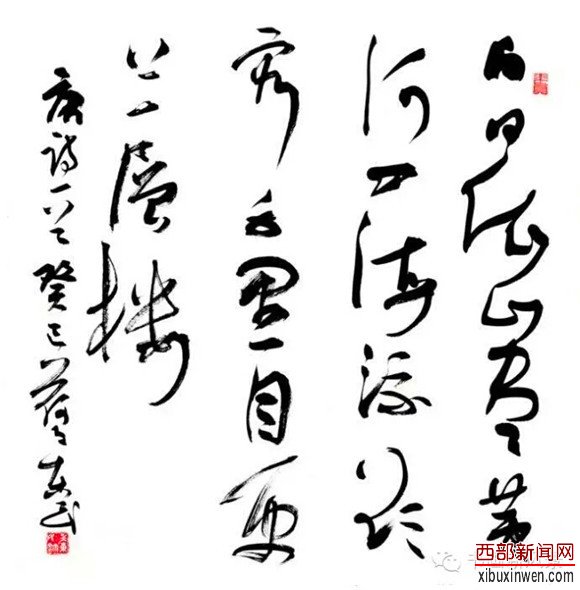 白日依山尽黄
河入海流欲
穷千里目更
上一層楼
唐诗一首癸巳
西部新闻网
xibuxinwen.com